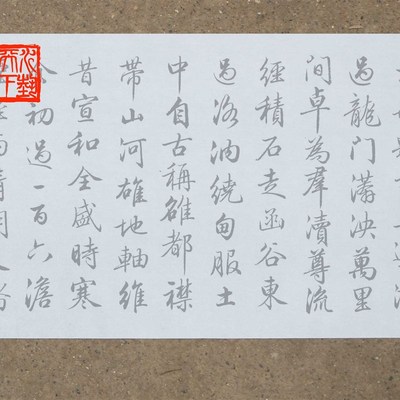 過龍门泱萬里
間卓為羣瀆尊流
經積石走函谷東
過洛汭繞甸服土
中自古稱雒都襟
帶山河雄地軸維
昔宣和全盛時寒
初過一百六澹